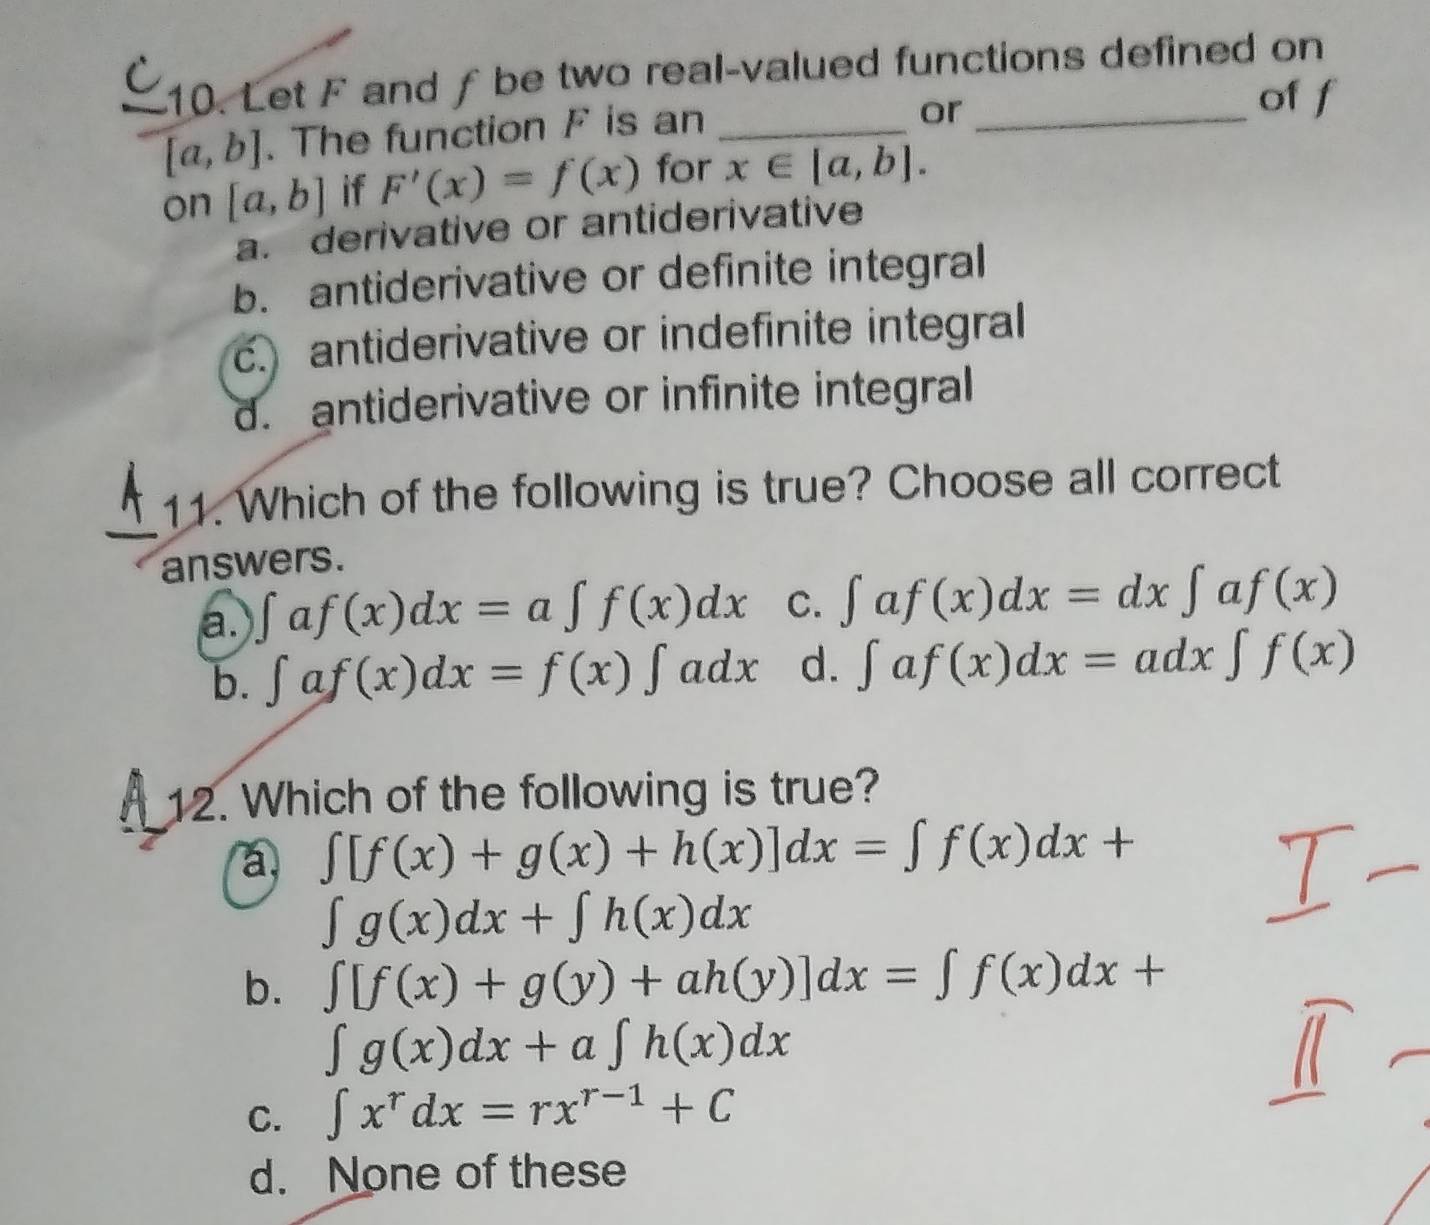 C 10. Let F and f be two real-valued functions defined on
[a, b]. The function F is an ________ or ____________ of f
on [a, b] if F′(x) = f(x) for x ∈ [a, b].
a. derivative or antiderivative
b. antiderivative or definite integral
c. antiderivative or indefinite integral
d. antiderivative or infinite integral
A 11. Which of the following is true? Choose all correct
answers.
a. ∫ af(x)dx = a ∫ f(x)dx c. ∫ af(x)dx = dx ∫ af(x)
b. ∫ af(x)dx = f(x) ∫ adx d. ∫ af(x)dx = adx ∫ f(x)
A 12. Which of the following is true?
a. ∫[f(x) + g(x) + h(x)]dx = ∫ f(x)dx +
∫ g(x)dx + ∫ h(x)dx
I -
b. ∫[f(x) + g(y) + ah(y)]dx = ∫ f(x)dx +
∫ g(x)dx + a ∫ h(x)dx
II -
c. ∫ xʳ dx = rxʳ⁻¹ + C
d. None of these